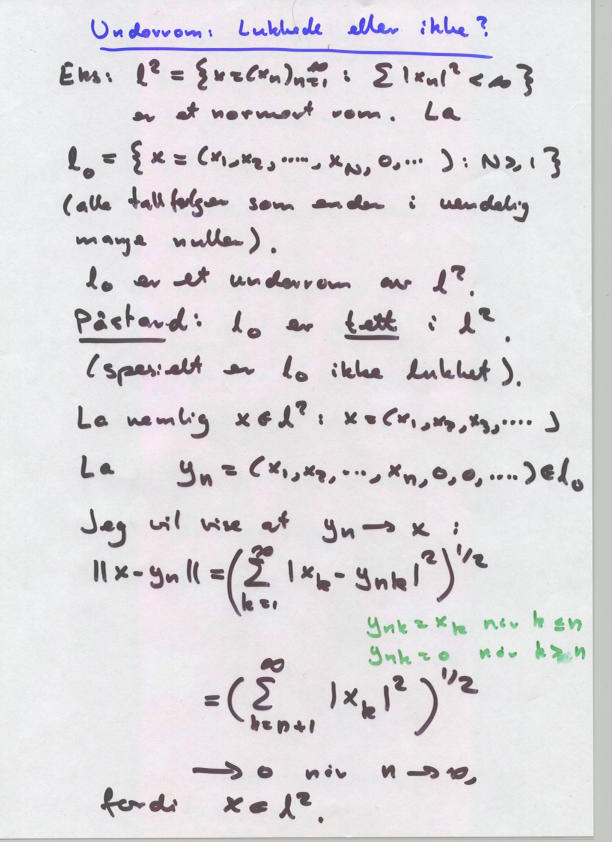 Underrom: Lukkede eller ikke?
Eks: l² = {x=(xₙ)ₙ₌₁^∞ : Σ|xₙ|² < ∞}
er et normert rom. La
l₀ = {x = (x₁,x₂,....,x_N,0,...) : N≥1}
(alle tallfølger som ender i uendelig
mange nuller).
l₀ er et underrom av l².
Påstand: l₀ er tett i l².
(spesielt er l₀ ikke lukket).
La nemlig x∈l² : x=(x₁,x₂,x₃,....)
La yₙ = (x₁,x₂,...,xₙ,0,0,....)∈l₀
Jeg vil vise at yₙ → x :
||x-yₙ|| = (Σ_{k=1}^∞ |x_k - y_{nk}|²)^{1/2}
y_{nk} = x_k når k≤n
y_{nk} = 0 når k>n
= (Σ_{k=n+1}^∞ |x_k|²)^{1/2}
→ 0 når n→∞,
fordi x∈l².